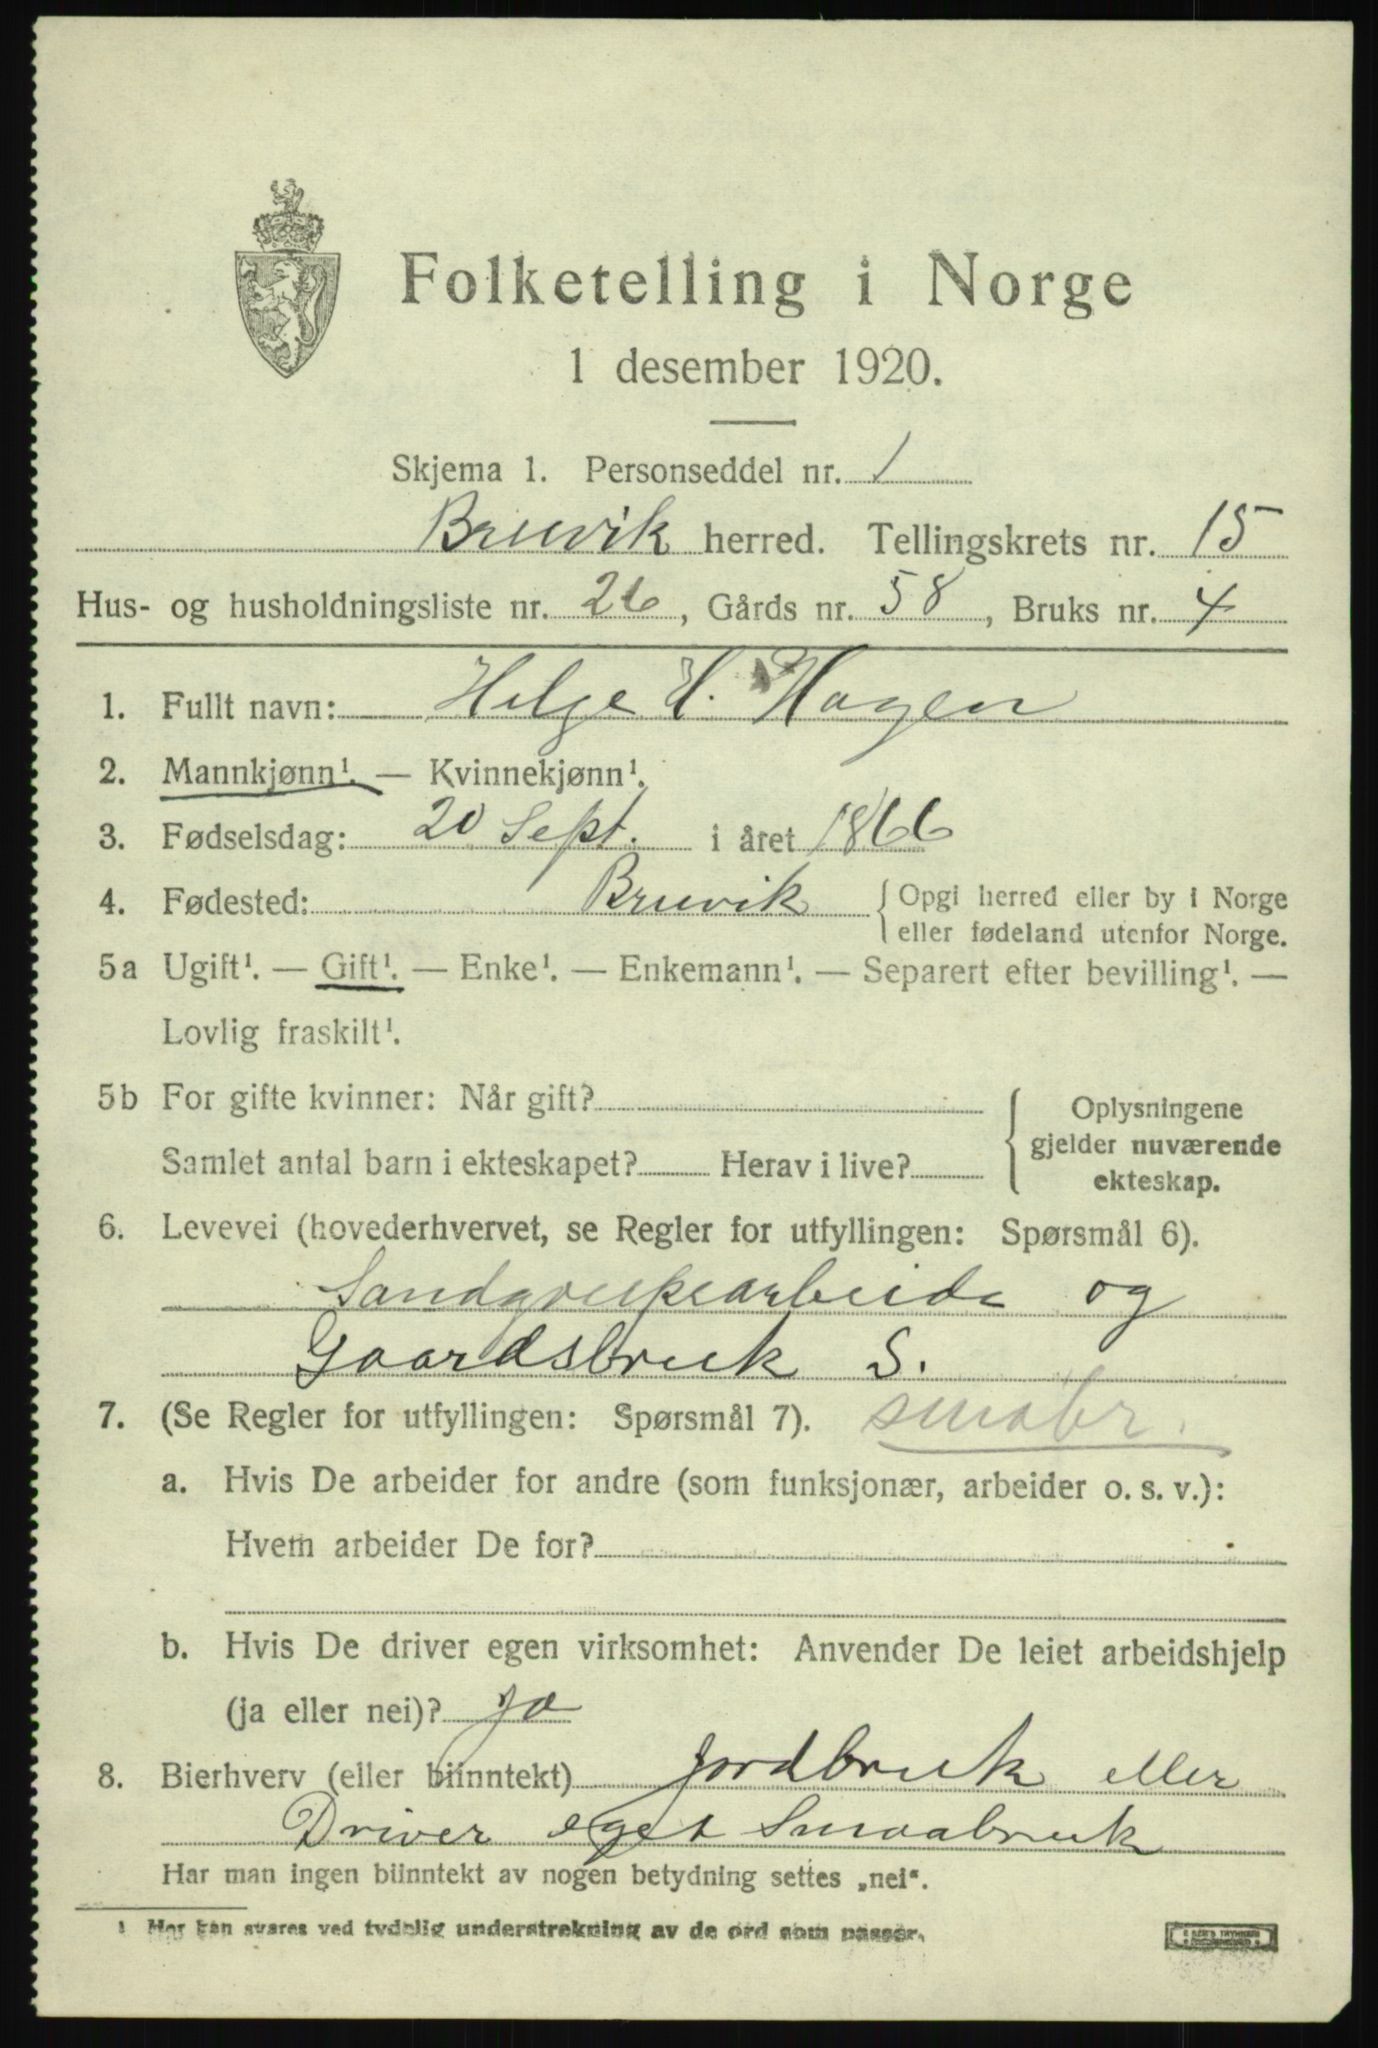 Folketelling i Norge
1 desember 1920.
Skjema 1. Personseddel nr. 1
Bruvik herred. Tellingskrets nr. 15
Hus- og husholdningsliste nr. 26, Gårds nr. 58, Bruks nr. 4
1. Fullt navn: Helge H. Hagen
2. Mannkjønn¹. — Kvinnekjønn¹.
3. Fødselsdag: 20 Sept. i året 1866
4. Fødested: Bruvik { Opgi herred eller by i Norge
eller fødeland utenfor Norge.
5a Ugift¹. — Gift¹. — Enke¹. — Enkemann¹. — Separert efter bevilling¹. —
Lovlig fraskilt¹.
5b For gifte kvinner: Når gift?
Samlet antal barn i ekteskapet? Herav i live?
{ Oplysningene
gjelder nuværende
ekteskap.
6. Levevei (hovederhvervet, se Regler for utfyllingen: Spørsmål 6).
og
Gaardsbruk S.
7. (Se Regler for utfyllingen: Spørsmål 7). småbr.
a. Hvis De arbeider for andre (som funksjonær, arbeider o. s. v.):
Hvem arbeider De for?
b. Hvis De driver egen virksomhet: Anvender De leiet arbeidshjelp
(ja eller nei)? Ja
8. Bierhverv (eller biinntekt) Jordbruk eller
Driver eget Smaabruk
Har man ingen biinntekt av nogen betydning settes „nei“.
¹ Her kan svares ved tydelig understrekning av de ord som passer.